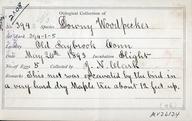 2108
Oological Collection of
No. 394 Downy Woodpecker
Set Mark 314-1-5
Locality Old Saybrook Conn
Date May 26th 1893 Incubation Slight
No. of Eggs 5 Collected by J. N. Clark
Remarks This nest was excavated by the bird in
a very hard dry Maple tree about 12 feet up.